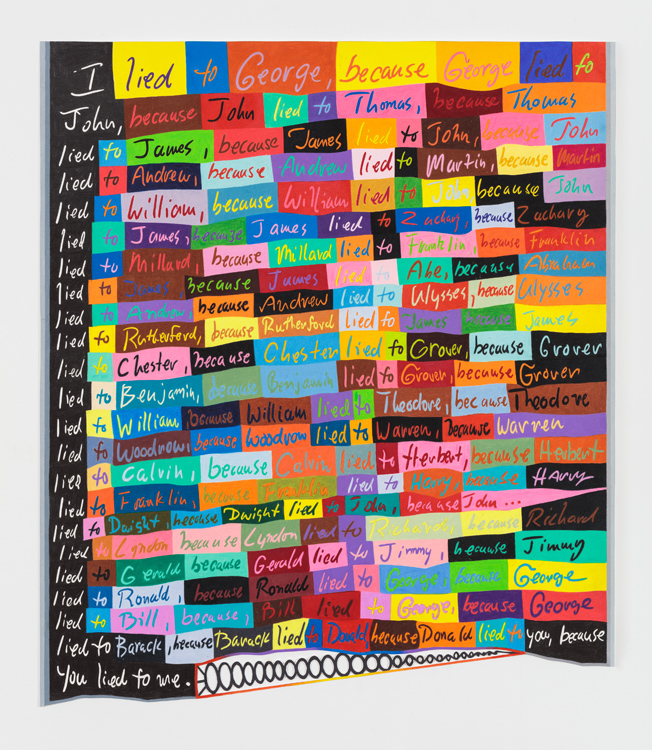 I lied to George, because George lied to
John, because John lied to Thomas, because Thomas
lied to James, because James lied to John, because John
lied to Andrew, because Andrew lied to Martin, because Martin
lied to William, because William lied to John, because John
lied to James, because James lied to Zachary, because Zachary
lied to Millard, because Millard lied to Franklin, because Franklin
lied to James because James lied to Abe, because Abraham
lied to Andrew, because Andrew lied to Ulysses, because Ulysses
lied to Rutherford, because Rutherford lied to James because James
lied to Chester, because Chester lied to Grover, because Grover
lied to Benjamin, because Benjamin lied to Grover, because Grover
lied to William because William lied to Theodore, because Theodore
lied to Woodrow, because Woodrow lied to Warren, because Warren
lied to Calvin, because Calvin lied to Herbert, because Herbert
lied to Franklin, because Franklin lied to Harry, because Harry
lied to Dwight, because Dwight lied to John, because John ...
lied to Lyndon because Lyndon lied to Richard, because Richard
lied to Gerald because Gerald lied to Jimmy, because Jimmy
lied to Ronald, because Ronald lied to George, because George
lied to Bill, because, Bill lied to George, because George
lied to Barack, because Barack lied to Donald because Donald lied to you, because
you lied to me.